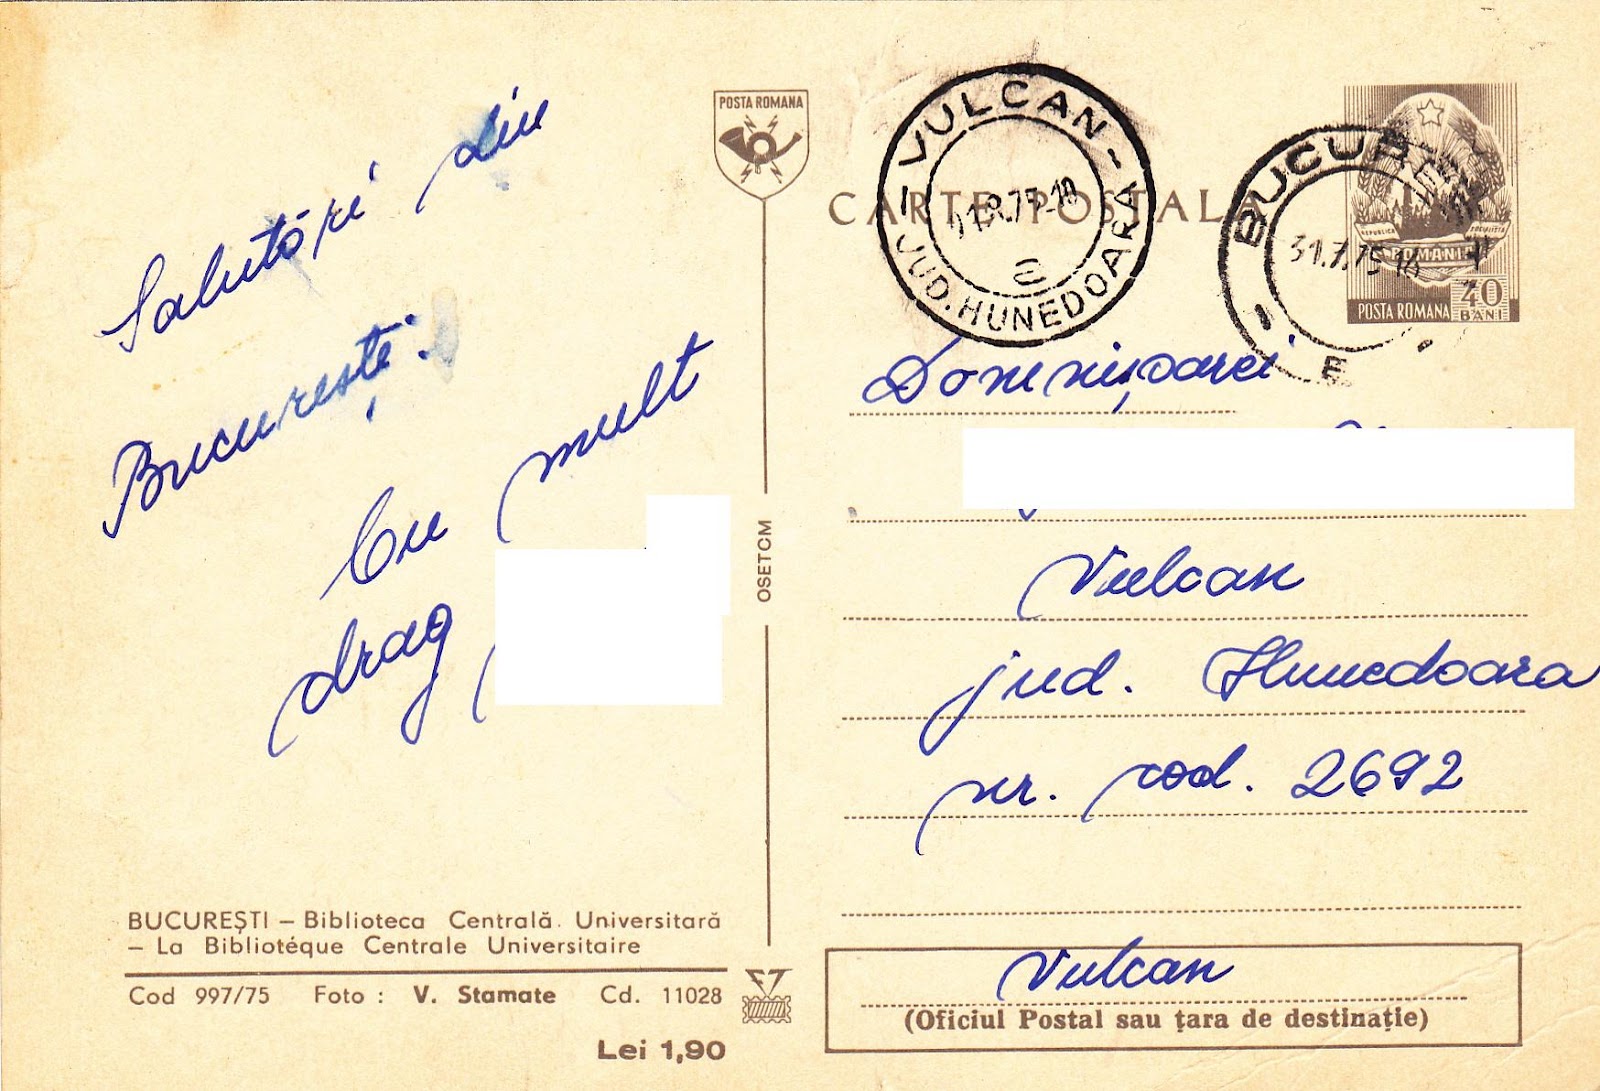 Salutări din
București.
Cu mult
drag
BUCUREȘTI – Biblioteca Centrală Universitară
– La Bibliotéque Centrale Universitaire
Cod 997/75 Foto : V. Stamate Cd. 11028
Lei 1,90
POSTA ROMANA
OSETCM
CARTE POSTALA
– VULCAN –
JUD. HUNEDOARA
BUCUR
31.7.75
E
REPUBLICA SOCIALISTA
ROMANIA
POSTA ROMANA
40
BANI
Domnișoarei
Vulcan
jud. Hunedoara
nr. cod. 2692
Vulcan
(Oficiul Postal sau țara de destinație)